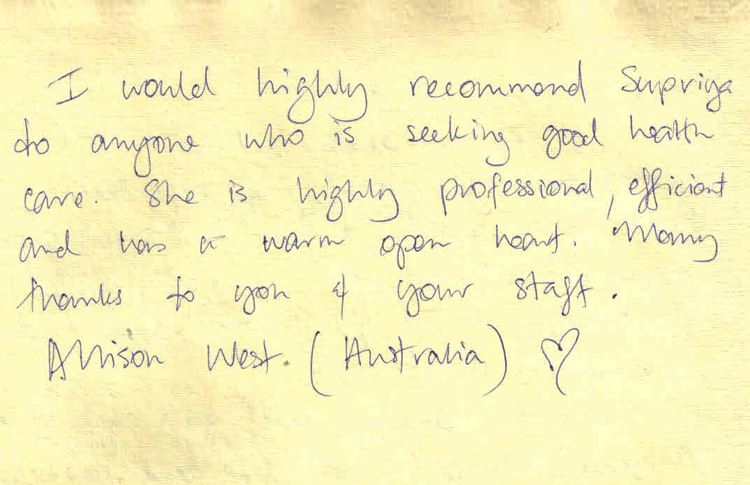 I would highly recommend Supriya
to anyone who is seeking good health
care. She is highly professional, efficient
and has a warm open heart. Many
thanks to you & your staff.
Allison West. (Australia) ♡